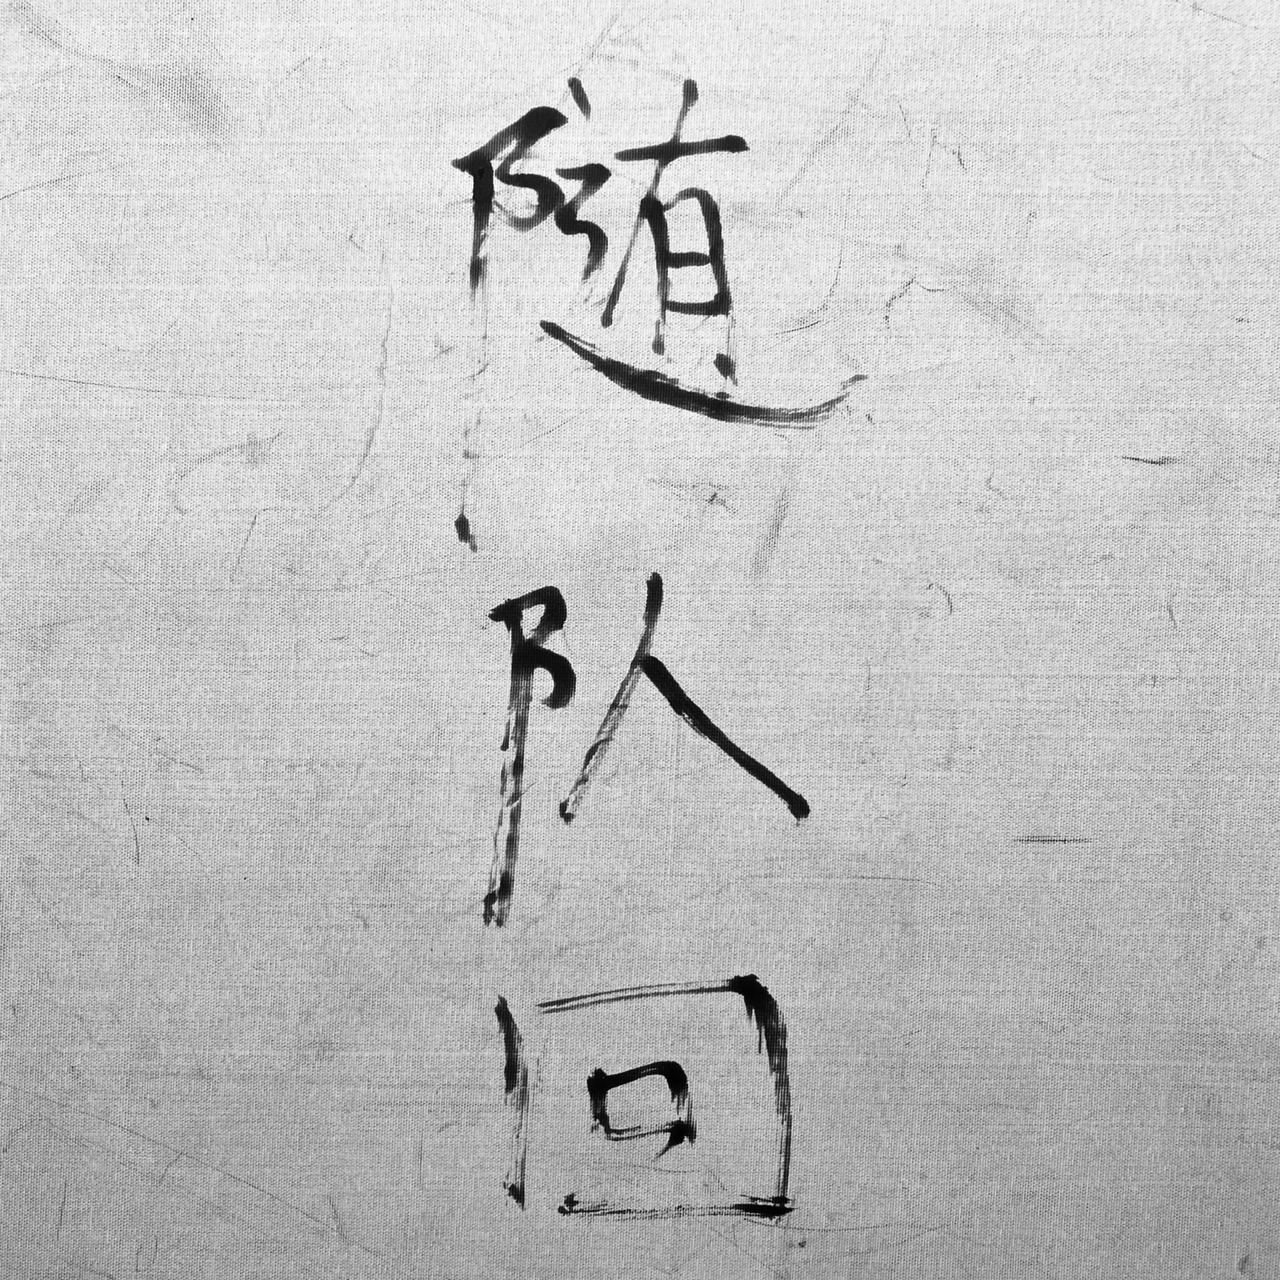 随队回